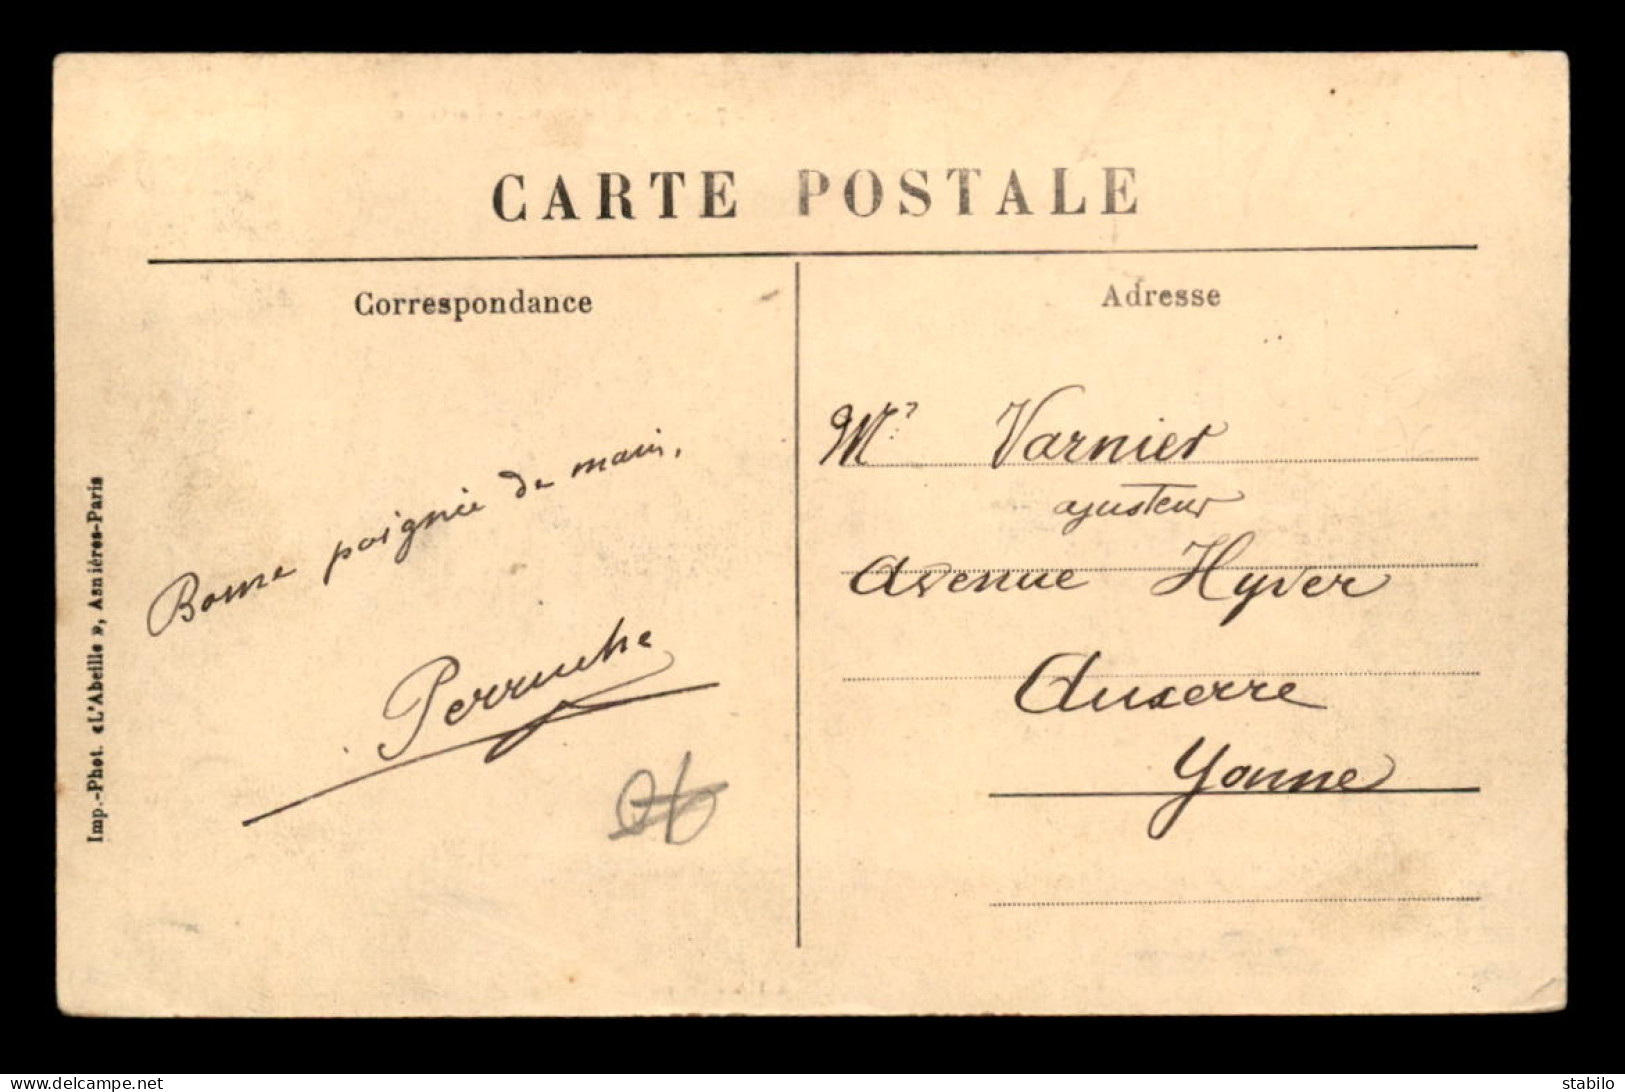 CARTE POSTALE
Correspondance
Adresse
Bonne poignée de main.
Perruche
Mr Varnier
ajusteur
Avenue Hyver
Auxerre
Yonne
Imp.-Phot. «L'Abeille», Asnières-Paris
www.delcampe.net
stabilo